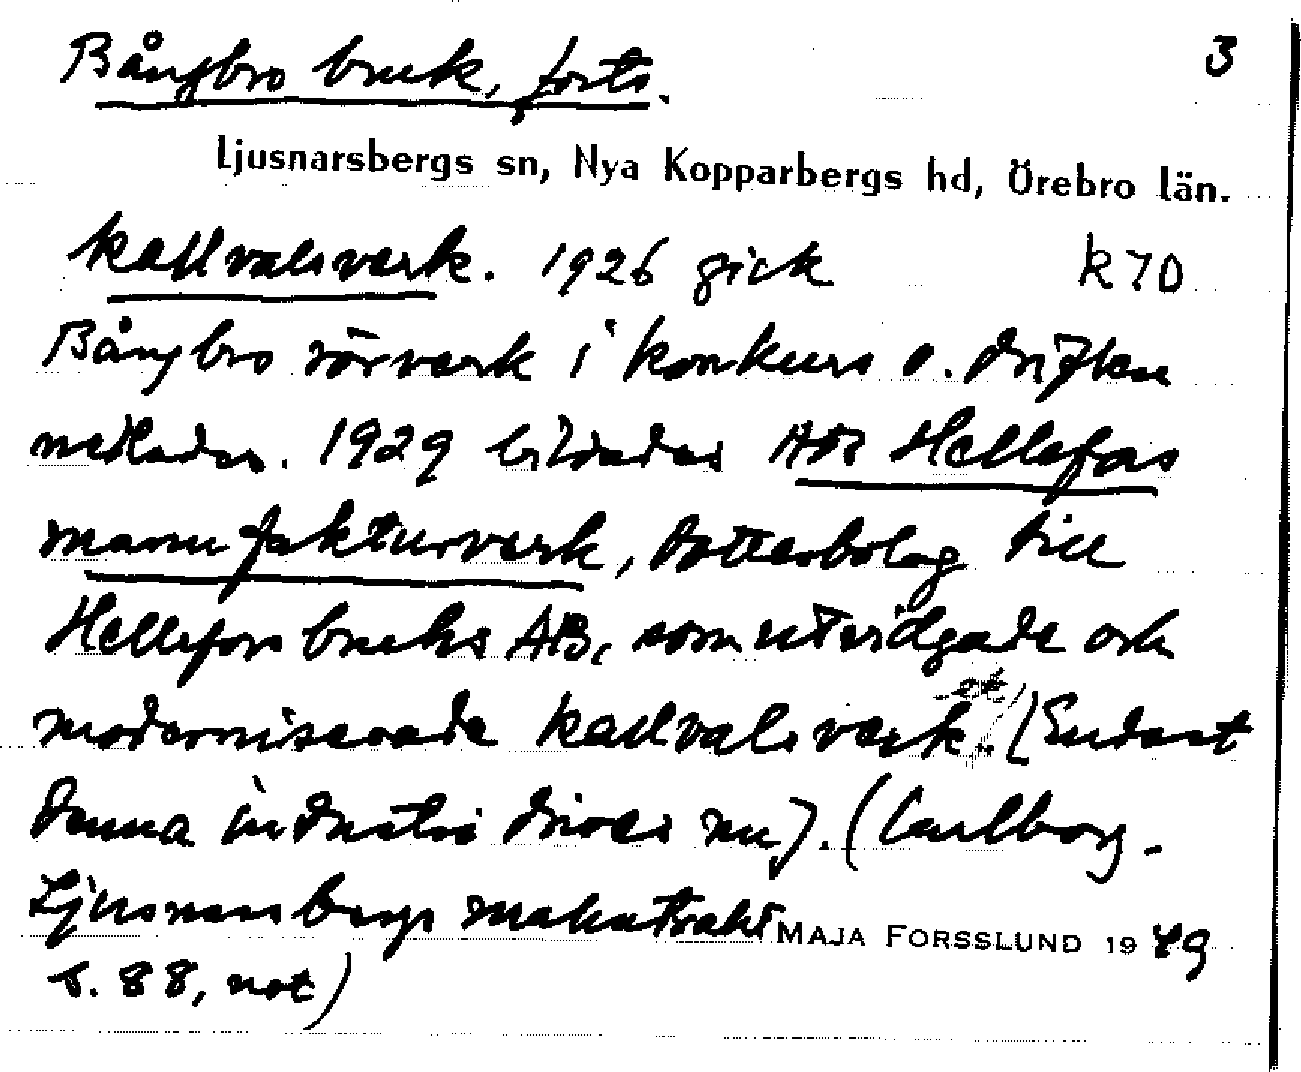 Bångbro bruk, forts. 3
Ljusnarsbergs sn, Nya Kopparbergs hd, Örebro län.
kallvalsverk. 1926 gick k70
Bångbro rörverk i konkurs o. driften
nedlades. 1929 bildades AB Hellefors
manufakturverk, dotterbolag till
Hellefors bruks AB, som utvidgade och
moderniserade kallvalsverk. (Endast
denna industri drives nu). (Carlborg -
Ljusnarsbergs malmtrakt MAJA FORSSLUND 1949
s. 88, not)